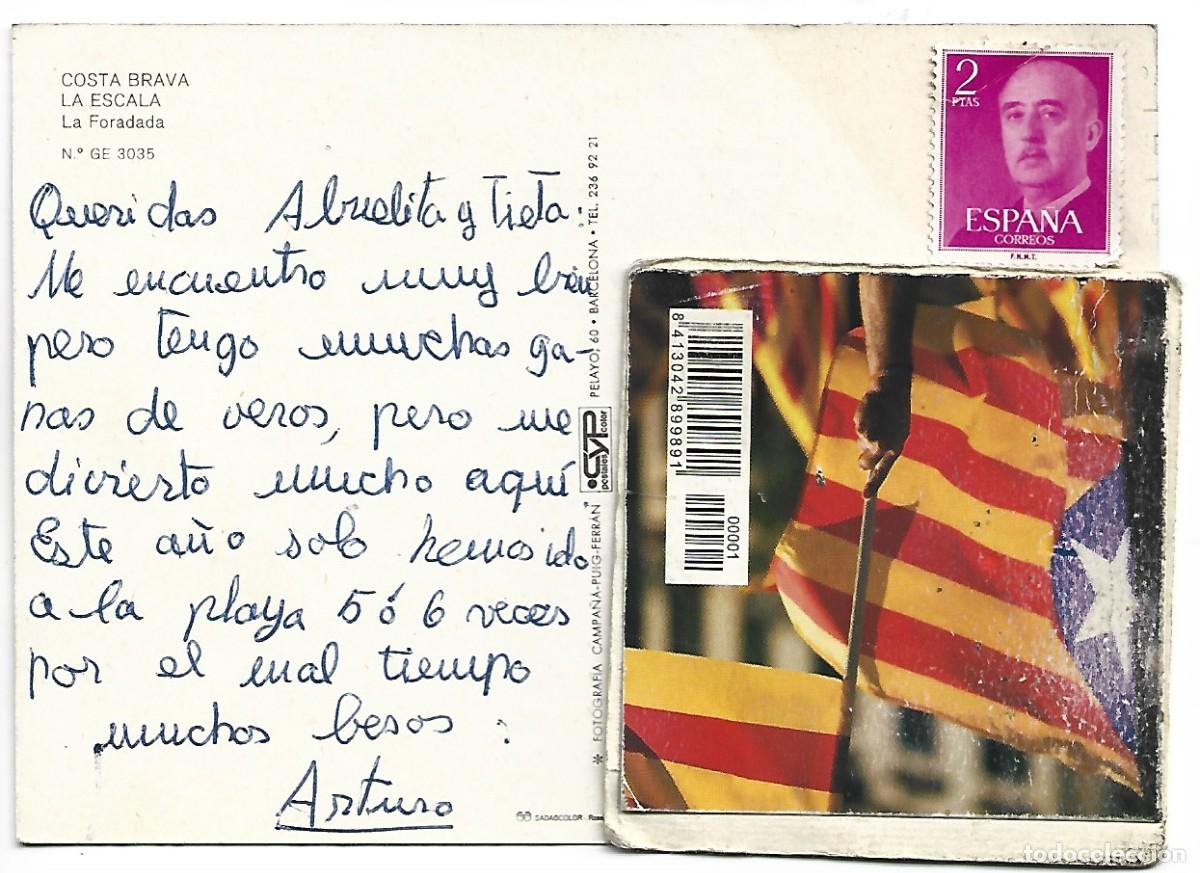 COSTA BRAVA
LA ESCALA
La Foradada
N.º GE 3035
Queridas Abuelita y Tieta:
Me encuentro muy bien
pero tengo muuchas ga-
nas de veros, pero me
divierto mucho aquí
Este año solo hemos ido
a la playa 5 ó 6 veces
por el mal tiempo
muuchos besos:
Arturo
* FOTOGRAFIA CAMPAÑA-PUIG-FERRÁN
CYP
postales color
PELAYO, 60 • BARCELONA • TEL. 236 92 21
SADAGCOLOR
2
PTAS
ESPAÑA
CORREOS
F.N.M.T.
8413042899891
00001
todocoleccion